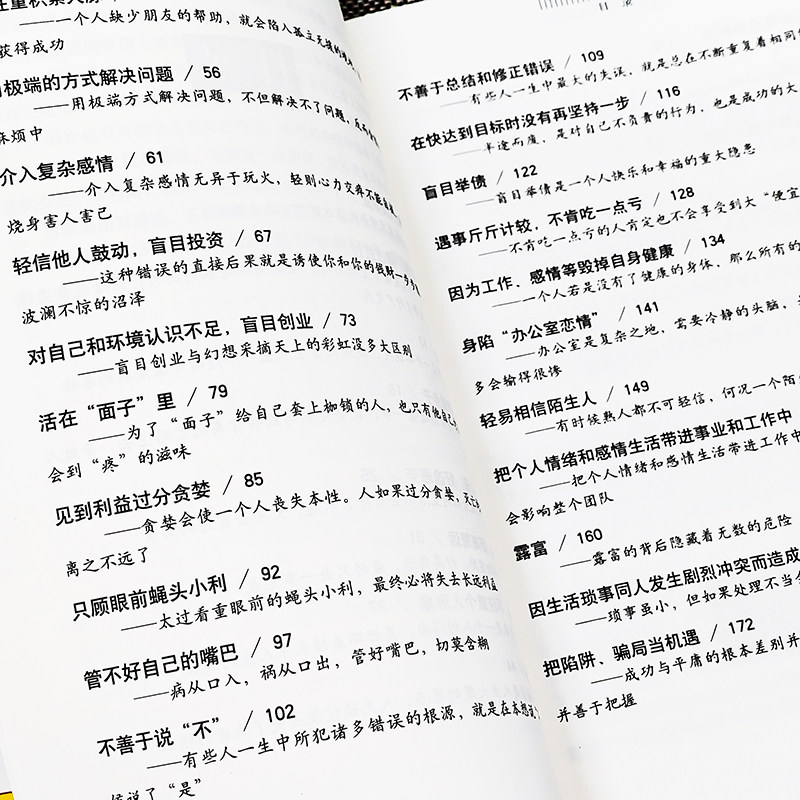 ——一个人缺少朋友的帮助，就会陷入孤立无援的
获得成功
极端的方式解决问题 / 56
——用极端方式解决问题，不但解决不了问题，反
麻烦中
介入复杂感情 / 61
——介入复杂感情无异于玩火，轻则心力交瘁
烧身害人害己
轻信他人鼓动，盲目投资 / 67
——这种错误的直接后果就是诱使你和你的钱财一步
波澜不惊的沼泽
对自己和环境认识不足，盲目创业 / 73
——盲目创业与幻想采摘天上的彩虹没多大区别
活在“面子”里 / 79
——为了“面子”给自己套上枷锁的人，也只有他自己
会到“疼”的滋味
见到利益过分贪婪 / 85
——贪婪会使一个人丧失本性。人如果过分贪婪，灭亡
离之不远了
只顾眼前蝇头小利 / 92
——太过看重眼前的蝇头小利，最终必将失去长远利益
管不好自己的嘴巴 / 97
——病从口入，祸从口出，管好嘴巴，切莫含糊
不善于说“不” / 102
——有些人一生中所犯诸多错误的根源，就是在本想说
候说了“是”
目 录
不善于总结和修正错误 / 109
——有些人一生中最大的失误，就是总在不断重复着相同
在快达到目标时没有再坚持一步 / 116
——半途而废，是对自己不负责的行为，也是成功的大
盲目举债 / 122
——盲目举债是一个人快乐和幸福的重大隐患
遇事斤斤计较，不肯吃一点亏 / 128
——不肯吃一点亏的人肯定也不会享受到大“便宜
因为工作、感情等毁掉自身健康 / 134
——一个人若是没有了健康的身体，那么所有的
身陷“办公室恋情” / 141
——办公室是复杂之地，需要冷静的头脑，
多会输得很惨
轻易相信陌生人 / 149
——有时候熟人都不可轻信，何况一个陌
把个人情绪和感情生活带进事业和工作中
——把个人情绪和感情生活带进工作中
会影响整个团队
露富 / 160
——露富的背后隐藏着无数的危险
因生活琐事同人发生剧烈冲突而造成
——琐事虽小，但如果处理不当
把陷阱、骗局当机遇 / 172
——成功与平庸的根本差别并
并善于把握